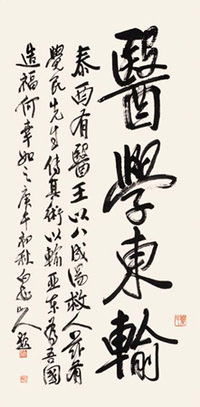 醫學東輸
泰西有醫王以八成湯救人有
覺民先生傳其術以輸亞東為吾國
造福何幸如之庚午初秋白龍山人題